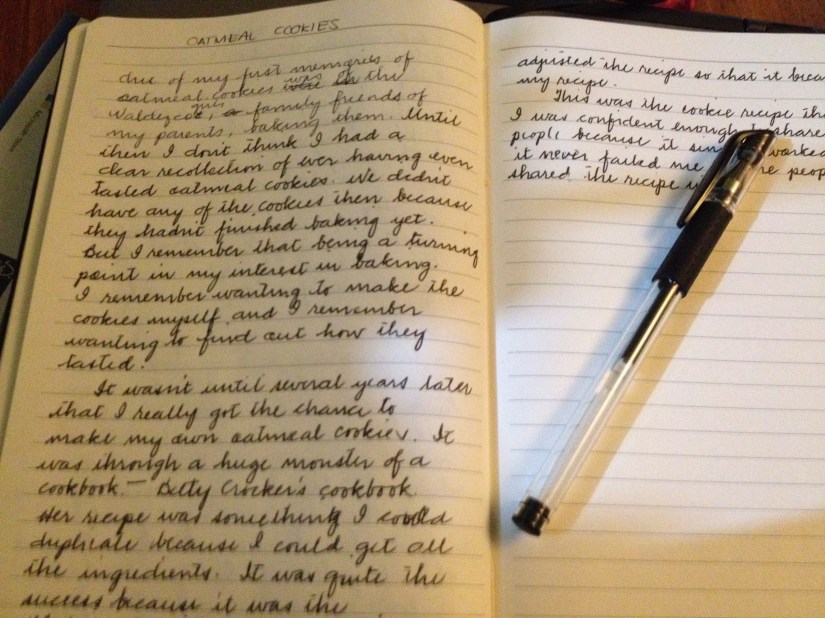 OATMEAL COOKIES
One of my first memories of
oatmeal cookies was in the
family friends of
my parents, baking them. Until
then I don't think I had a
clear recollection of ever having even
tasted oatmeal cookies. We didn't
have any of the cookies then because
they hadn't finished baking yet.
But I remember that being a turning
point in my interest in baking.
I remember wanting to make the
cookies myself and I remember
wanting to find out how they
tasted.
It wasn't until several years later
that I really got the chance to
make my own oatmeal cookies. It
was through a huge monster of a
cookbook. — Betty Crocker's cookbook.
Her recipe was something I could
duplicate because I could get all
the ingredients. It was quite the
success because it was the
adjusted the recipe so that it
my recipe.
This was the cookie recipe
I was confident enough share
people because it worked
it never failed me
shared the recipe